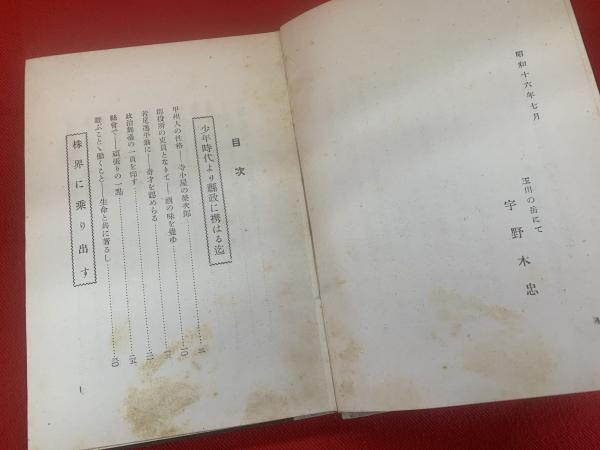 昭和十六年七月
玉川の岳にて
宇野木忠
目次
少年時代より縣政に携はる迄
甲州人の性格――寺小屋の榮次郎
郡役所の吏員となりて――酒の味を覺ゆ
若尾逸平翁に――奇才を認めらる
政治舞臺の一員を印す
縣會で――頑張りの一點
遊ぶことゝ働くこと――生命と共に蓄るし
株界に乘り出す